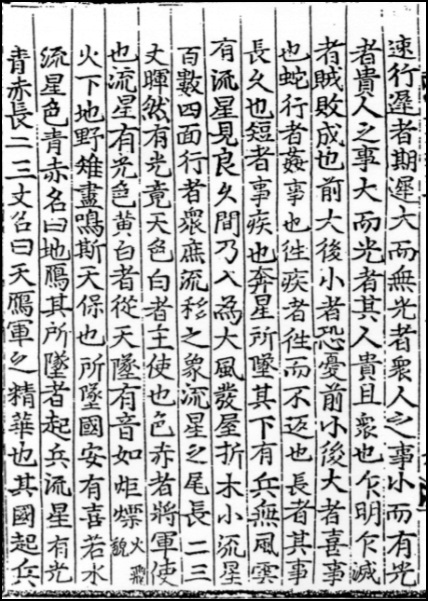 速行遲者期遲大而無光者衆人之事小而有光
者貴人之事大而光者其人貴且衆也乍明乍滅
者賊敗成也前大後小者恐憂前小後大者喜事
也蛇行者姦事也徃疾者徃而不返也長者其事
長久也短者事疾也奔星所墜其下有兵無風雲
有流星見良久間乃入為大風發屋折木小流星
百數四面行者衆庶流移之象流星之尾長二三
丈暉然有光竟天色白者主使也色赤者將軍使
也流星有光色黄白者從天墜有音如炬熛火飛貌
火下地野雉盡鳴斯天保也所墜國安有喜若水
流星色青赤名曰地鴈其所墜者起兵流星有光
青赤長二三丈名曰天鴈軍之精華也其國起兵